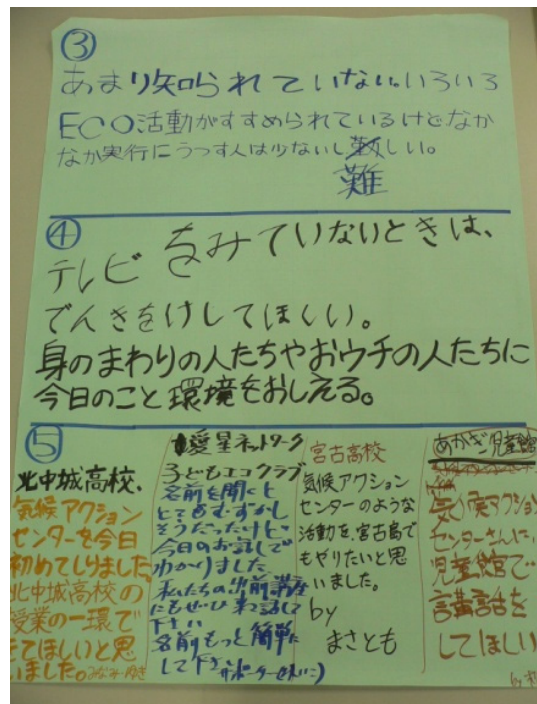 ③
あまり知られていない。いろいろ
ECO活動がすすめられているけどなか
なか実行にうつす人は少ないし難しい。
④
テレビをみていないときは、
でんきをけしてほしい。
身のまわりの人たちやおウチの人たちに
今日のこと環境をおしえる。
⑤
北中城高校、
気候アクション
センターを今日
初めてしりました。
北中城高校の
授業の一環で
きてほしいと思
いました。
愛星ネットワーク
子どもエコクラブ
名前を聞くと
とてもむずかし
そうだったけど
今日のお話しで
わかりました
私たちの出前講座
にもぜひ来て話して
下さい
名前もっと簡単に
して下さい
宮古高校
気候アクション
センターのような
活動を、宮古島で
もやりたいと思
いました。
by
まさとも
あかぎ児童館
気候アクション
センターさんに、
児童館で
講話を
してほしい
by